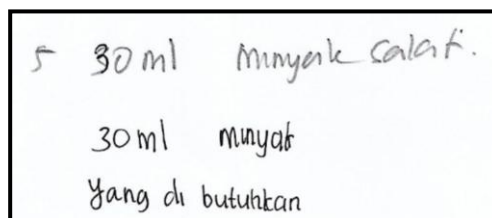 5 30ml minyak salat.
30ml minyak
yang di butuhkan